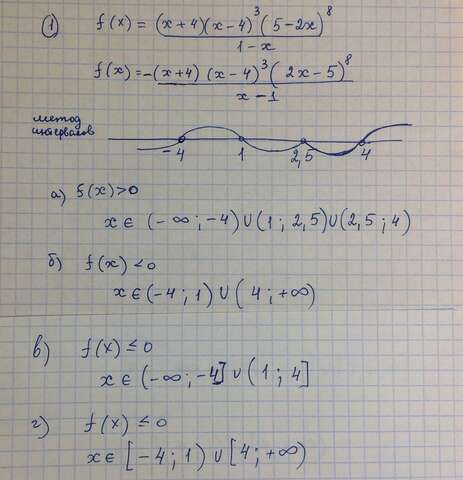 ① f(x) = (x+4)(x-4)³(5-2x)⁸ / 1-x
f(x) = -(x+4)(x-4)³(2x-5)⁸ / x-1
метод
интервалов
-4 1 2,5 4
а) f(x)>0
x ∈ (-∞; -4)∪(1; 2,5)∪(2,5; 4)
б) f(x) <0
x ∈ (-4; 1) ∪ (4; +∞)
в) f(x) ≤ 0
x ∈ (-∞; -4] ∪ (1; 4]
г) f(x) ≤ 0
x ∈ [-4; 1) ∪ [4; +∞)